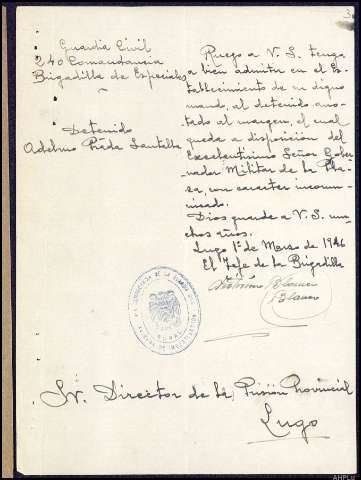 Guardia Civil
240 Comandancia
Brigadilla de Especiales
Detenido
Adelmo Prada Santalla
Ruego a V. S. tenga
a bien admitir en el Es-
tablecimiento de su digno
mando, al detenido ano-
tado al margen, el cual
queda a disposición del
Excelentísimo Señor Gober-
nador Militar de la Pla-
za, con caracter incomu-
nicado.
Dios guarde a V. S. mu-
chos años.
Lugo 1º de Marzo de 1946
El Jefe de la Brigadilla
Blanco
Sr. Director de la Prisión Provincial
Lugo
AHPLu